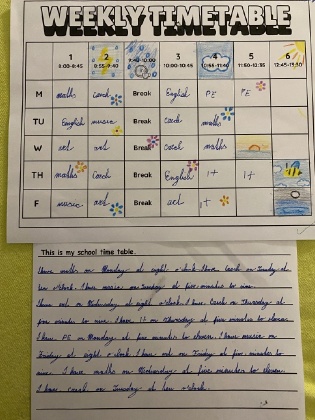 WEEKLY TIMETABLE
1 2 3 4 5 6
8:00-8:45 8:55-9:40 9:40-10:00 10:00-10:45 10:55-11:40 11:50-12:35 12:45-13:30
M maths Czech Break English PE PE
TU English music Break Czech maths
W art art Break Czech maths
TH maths Czech Break English It It
F music art Break art It
This is my school time table.
I have maths on Monday at eight o'clock. I have Czech on Tuesday at
ten o'clock. I have music on Tuesday at five minutes to nine.
I have art on Wednesday at eight o'clock. I have Czech on Thursday at
five minutes to nine. I have It on Thursday at five minutes to eleven.
I have PE on Monday at five minutes to eleven. I have music on
Friday at eight o'clock. I have art on Friday at five minutes to
nine. I have maths on Wednesday at five minutes to eleven.
I have Czech on Tuesday at ten o'clock.